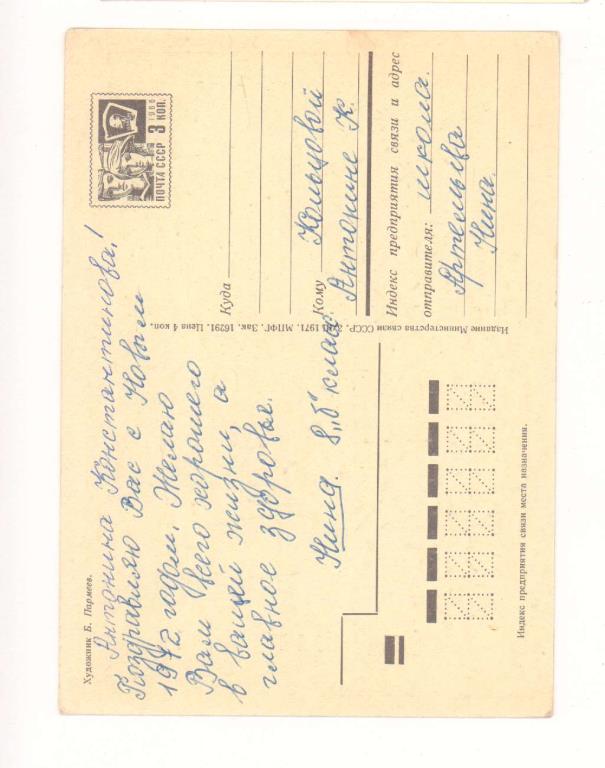 Художник Б. Пармеев.
Антонина Константинова!
Поздравляю Вас с Новым
1972 годом. Желаю
Вам всего хорошего
в вашей жизни, а
главное здоровье.
Нина. 8 „б" класс.
Издание Министерства связи СССР. 1971. МПФГ. Зак. 16291. Цена 4 коп.
1966
3 КОП.
ПОЧТА СССР
Куда
Кому Кольцовой
Антонине К.
Индекс предприятия связи и адрес
отправителя: школа.
Артемьева
Нина.
Индекс предприятия связи места назначения.